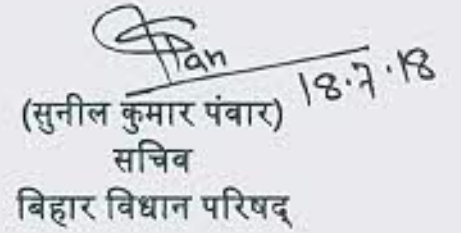 18.7.18
(सुनील कुमार पंवार)
सचिव
बिहार विधान परिषद्